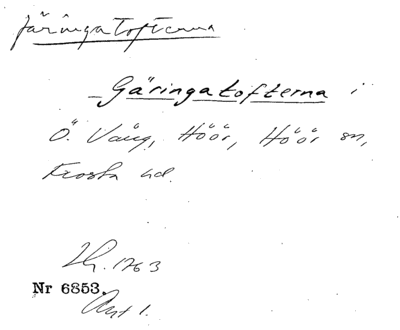 Järingatofterna
Gäringatofterna i
Ö. Väng, Höör, Höör sn,
Frosta hd.
1763
Nr 6853.
Akt 1.